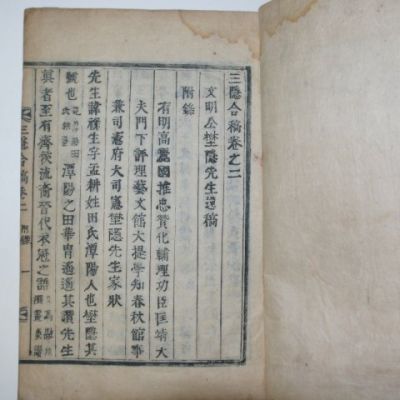 三隱合稿卷之二
文明公埜隱先生逸稿
附錄
有明高麗國推忠贊化輔理功臣匡靖大
夫門下評理藝文館大提學知春秋館事
兼司憲府大司憲埜隱先生家狀
先生諱祿生字孟耕姓田氏潭陽人也埜隱其
號也 潭陽之田華胄遙遙其諱先生
眞者至有齊俠流裔晉代衣冠之語
三隱合稿卷二 附錄 一